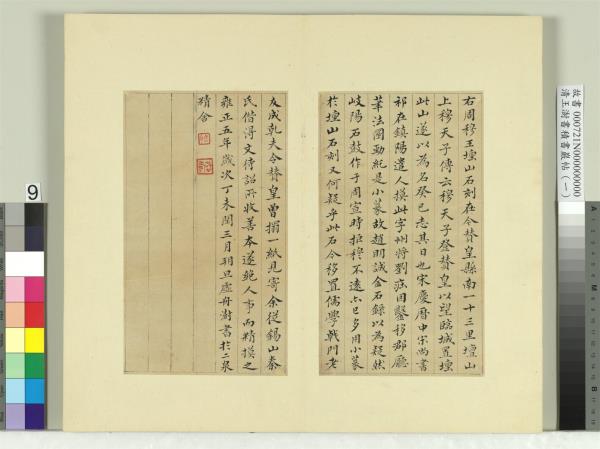 右周穆王壇山石刻在今贊皇縣南一十三里壇山
上穆天子傳云穆天子登贊皇以望臨城置壇
此山遂以為名癸巳志其日也宋慶曆中宋尚書
祁在鎮陽遣人摸此字州將劉莊因鑿移郡廳
筆法圓勁純是小篆故趙明誠金石錄以為疑然
岐陽石鼓作于周宣時距穆不遠亦已多用小篆
於壇山石刻又何疑乎此石今移置儒學戟門老
友成乹夫令贊皇曾搨一紙見寄余從錫山秦
氏借得文待詔所收善本遂絕人事而精摸之
雍正五年歲次丁未閏三月朔旦虛舟澍書於二泉
精舍
故書 000721N000000000
清王澍書積書巖帖（一）
9